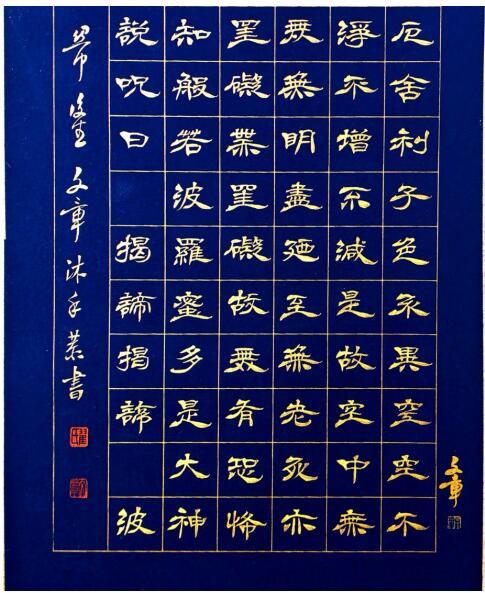 厄舍利子色不異空空不
淨不增不減是故空中無
無無明盡廼至無老死亦
罣礙無罣礙故無有恐怖
知般若波羅蜜多是大神
說呪曰 揭諦揭諦 波
文章沐手恭書
文章